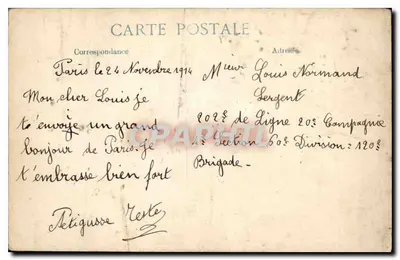 CARTE POSTALE
Correspondance
Adresse
Paris le 24 Novembre 1914
Mon cher Louis je
t'envoie un grand
bonjour de Paris. Je
t'embrasse bien fort
Mieur Louis Normand
Sergent
202e de Ligne 20e Compagnie
Section 60e Division : 120e
Brigade -